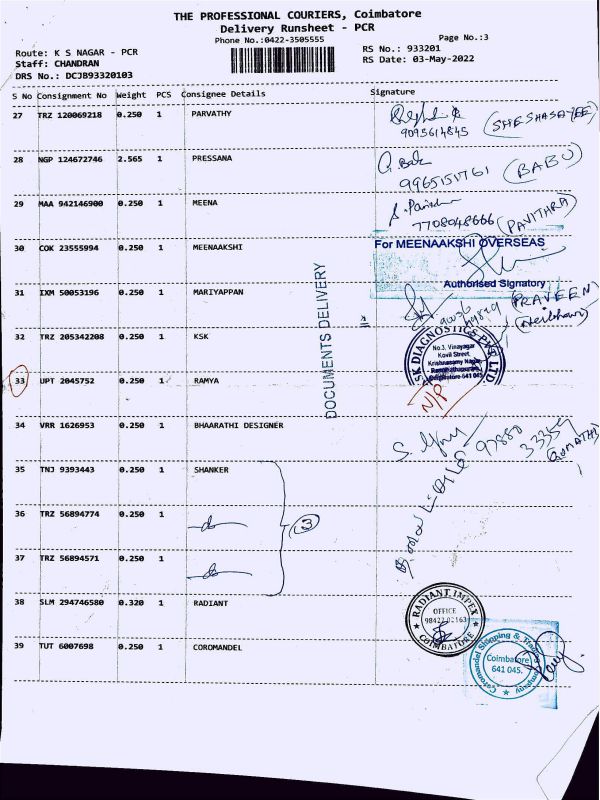 THE PROFESSIONAL COURIERS, Coimbatore
Delivery Runsheet - PCR
Phone No.:0422-3505555
Page No.:3
Route: K S NAGAR - PCR
RS No.: 933201
Staff: CHANDRAN
RS Date: 03-May-2022
DRS No.: DCJB93320103
S No Consignment No Weight PCS Consignee Details Signature
27 TRZ 120069218 0.250 1 PARVATHY
9095614845 (SHESHASAYEE)
28 NGP 124672746 2.565 1 PRESSANA
9965151761 (BABU)
29 MAA 942146900 0.250 1 MEENA
7708048666 (PAVITHRA)
30 COK 23555994 0.250 1 MEENAAKSHI
For MEENAAKSHI OVERSEAS
Authorised Signatory
31 IXM 50053196 0.250 1 MARIYAPPAN
PRAVEEN
DOCUMENTS DELIVERY
32 TRZ 205342208 0.250 1 KSK
SK DIAGNOSTICS PVT LTD
No.3, Vinayagar
Kovil Street,
Krishnasamy Nagar
Ramanathapuram,
Coimbatore 641 045
33 UPT 2045752 0.250 1 RAMYA
N/P
34 VRR 1626953 0.250 1 BHAARATHI DESIGNER
97880 33359
35 TNJ 9393443 0.250 1 SHANKER
36 TRZ 56894774 0.250 1
do
3
37 TRZ 56894571 0.250 1
do
38 SLM 294746580 0.320 1 RADIANT
RADIANT IMPEX
OFFICE
COIMBATORE
39 TUT 6007698 0.250 1 COROMANDEL
Coromandel Shipping & Trading Company
Coimbatore
641 045.